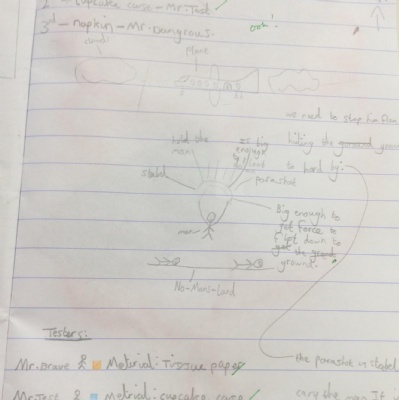 2 - cupcake case - Mr.Test
3rd - napkin - Mr.Dangrous.
ooh!
plane
we need to stop him from
hiting the ground
to hard by:-
hold the
man
Is big
enough
stabel
parashot
Big enough to
get force to
down to
the
ground.
man
No-Mans-Land
Testers:
the parashot is stabel
Mr.Brave Material: Tissue paper
Mr.Test Metrial: cupcake case
cary the man If